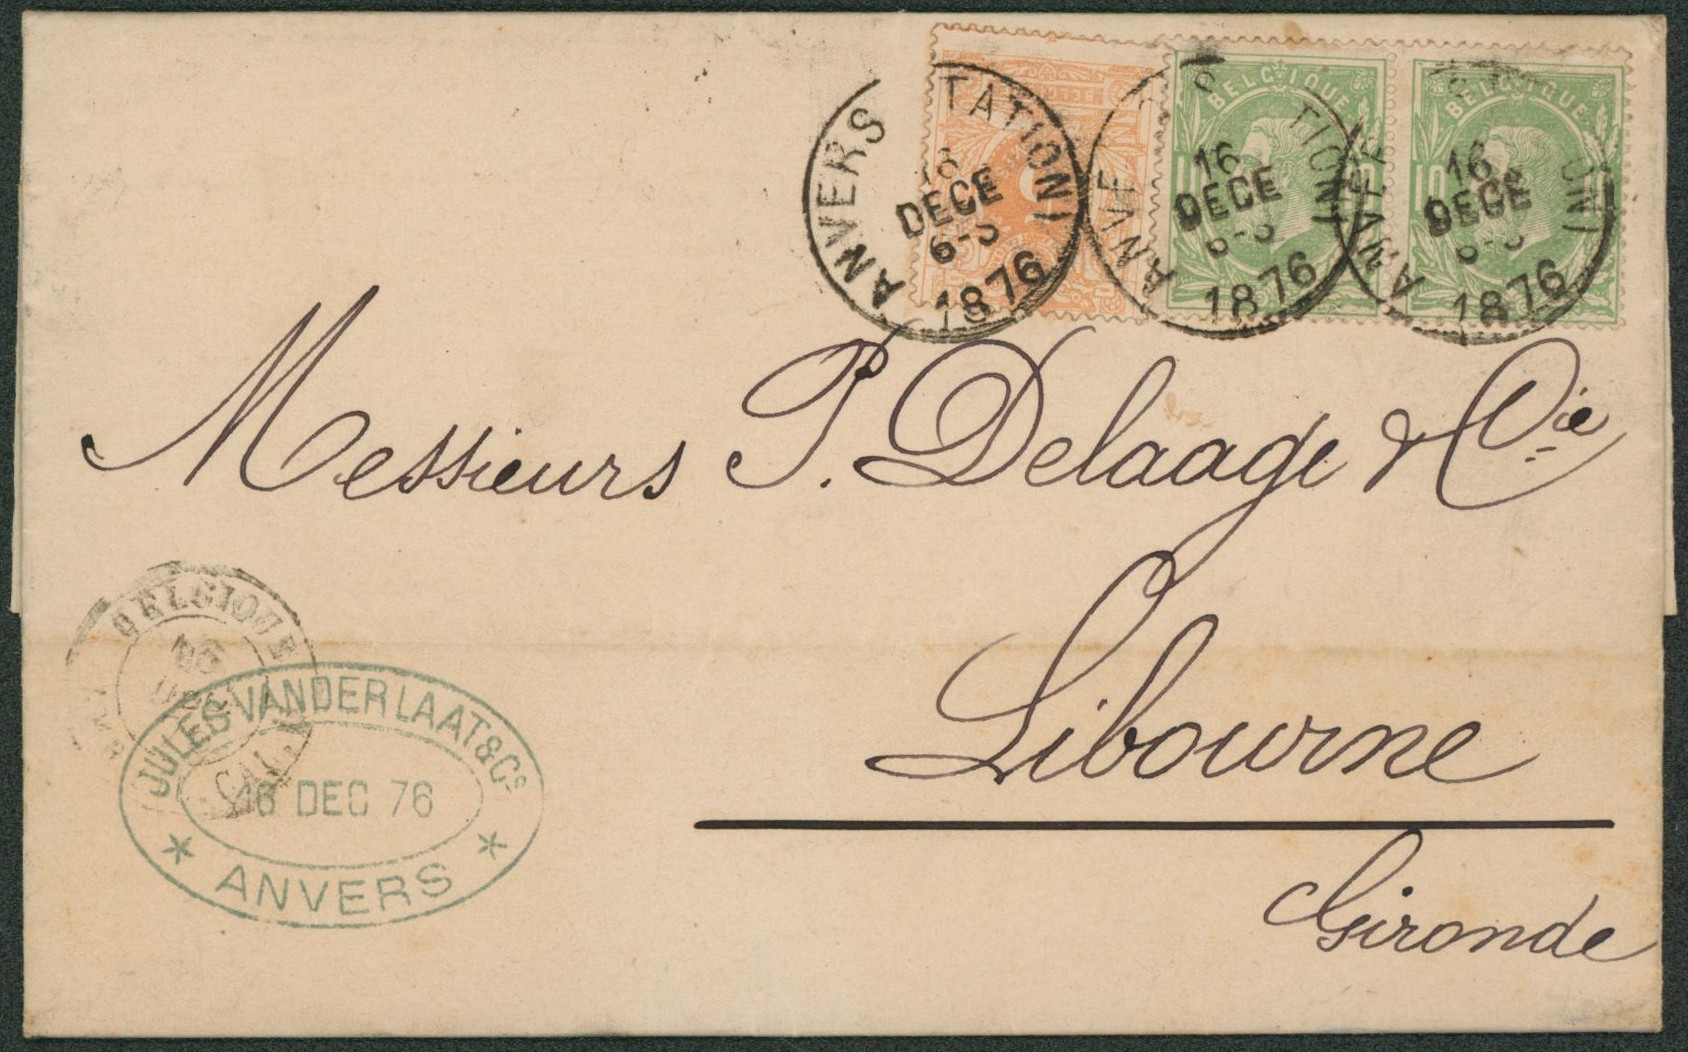 ANVERS STATION
16
DECE
6-S
1876
BELGIQUE
10
16
DECE
1876
BELGIQUE
10
16
DECE
1876
Messieurs P. Delaage & Cie
Libourne
Gironde
BELGIQUE
JULES VANDERLAAT & Co
16 DEC 76
ANVERS